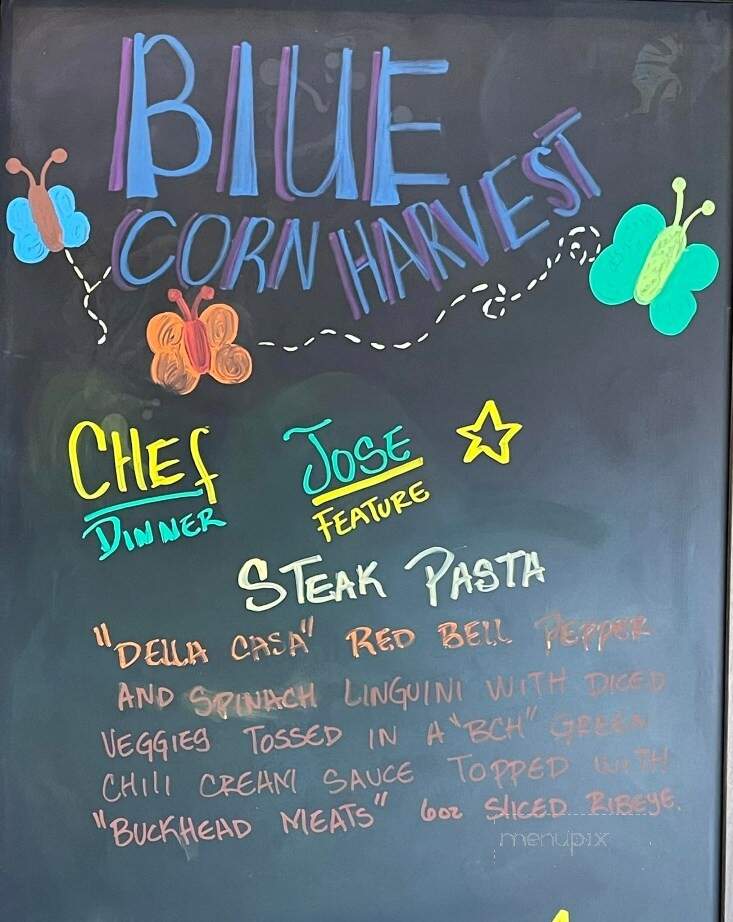 BLUE
CORN HARVEST
CHEf JOSE
DINNER FEATURE
STEAK PASTA
"DELLA CASA" RED BELL PEPPER
AND SPINACH LINGUINI WITH DICED
VEGGIES TOSSED IN A "BCH" GREEN
CHILI CREAM SAUCE TOPPED WITH
"BUCKHEAD MEATS" 6oz SLICED RIBEYE.
menupix